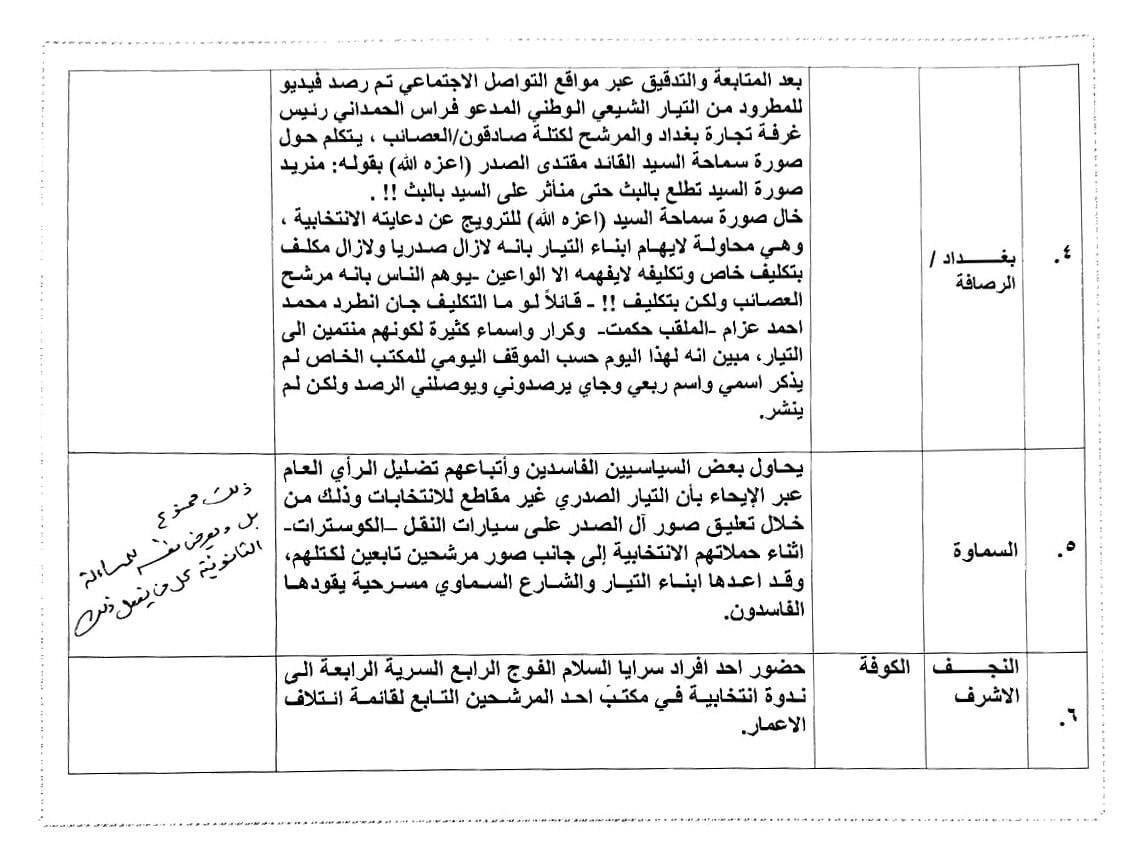 ٤.
بغـــــداد /
الرصافة
بعد المتابعة والتدقيق عبر مواقع التواصل الاجتماعي تم رصد فيديو
للمطرود من التيار الشيعي الوطني المدعو فراس الحمداني رئيس
غرفة تجارة بغداد والمرشح لكتلة صادقون/العصائب ، يتكلم حول
صورة سماحة السيد القائد مقتدى الصدر (اعزه الله) بقوله: منريد
صورة السيد تطلع بالبث حتى منأثر على السيد بالبث !! .
خال صورة سماحة السيد (اعزه الله) للترويج عن دعايته الانتخابية ،
وهي محاولة لايهام ابناء التيار بانه لازال صدريا ولازال مكلف
بتكليف خاص وتكليفه لايفهمه الا الواعين -يوهم الناس بانه مرشح
العصائب ولكن بتكليف !! - قائلاً لو ما التكليف جان انطرد محمد
احمد عزام -الملقب حكمت- وكرار واسماء كثيرة لكونهم منتمين الى
التيار، مبين انه لهذا اليوم حسب الموقف اليومي للمكتب الخاص لم
يذكر اسمي واسم ربعي وجاي يرصدوني ويوصلني الرصد ولكن لم
ينشر.
٥.
السماوة
يحاول بعض السياسيين الفاسدين وأتباعهم تضليل الرأي العام
عبر الإيحاء بأن التيار الصدري غير مقاطع للانتخابات وذلك من
خلال تعليق صور آل الصدر على سيارات النقل –الكوسترات-
اثناء حملاتهم الانتخابية إلى جانب صور مرشحين تابعين لكتلهم،
وقد اعدها ابناء التيار والشارع السماوي مسرحية يقودها
الفاسدون.
ذلك ممنوع
بل ويعرض نفسه للمساءلة
القانونية كل من يفعل ذلك
٦.
النجـــــف
الاشرف
الكوفة
حضور احد افراد سرايا السلام الفوج الرابع السرية الرابعة الى
ندوة انتخابية في مكتب احد المرشحين التابع لقائمة ائتلاف
الاعمار.